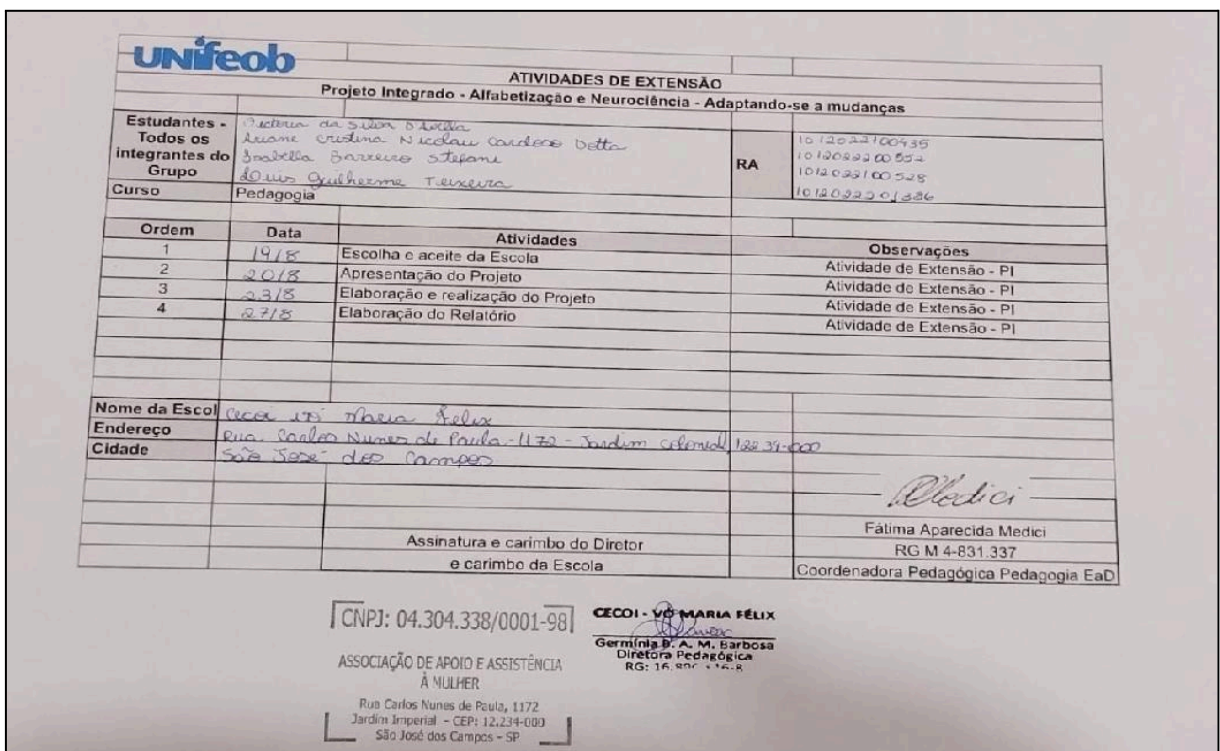 unifeob
ATIVIDADES DE EXTENSÃO
Projeto Integrado - Alfabetização e Neurociência - Adaptando-se a mudanças
Estudantes - Todos os integrantes do Grupo
da Silva
Cristina Nicolau Cardoso
Isabella Barreiro Stefani
Luis Guilherme Teixeira
RA
1012022100935
1012022200552
1012022100528
1012022201386
Curso Pedagogia
Ordem Data Atividades Observações
1 19/8 Escolha e aceite da Escola Atividade de Extensão - PI
2 20/8 Apresentação do Projeto Atividade de Extensão - PI
3 23/8 Elaboração e realização do Projeto Atividade de Extensão - PI
4 27/8 Elaboração do Relatório Atividade de Extensão - PI
Nome da Escol Cecoi Maria Felix
Endereço Rua Carlos Nunes de Paula - 1172 - Jardim
Cidade São José dos Campos
Fátima Aparecida Medici
Assinatura e carimbo do Diretor RG M 4-831.337
e carimbo da Escola Coordenadora Pedagógica Pedagogia EaD
CNPJ: 04.304.338/0001-98
ASSOCIAÇÃO DE APOIO E ASSISTÊNCIA
À MULHER
Rua Carlos Nunes de Paula, 1172
Jardim Imperial - CEP: 12.234-000
São José dos Campos - SP
CECOI - VÓ MARIA FÉLIX
Germínia B. A. M. Barbosa
Diretora Pedagógica
RG: